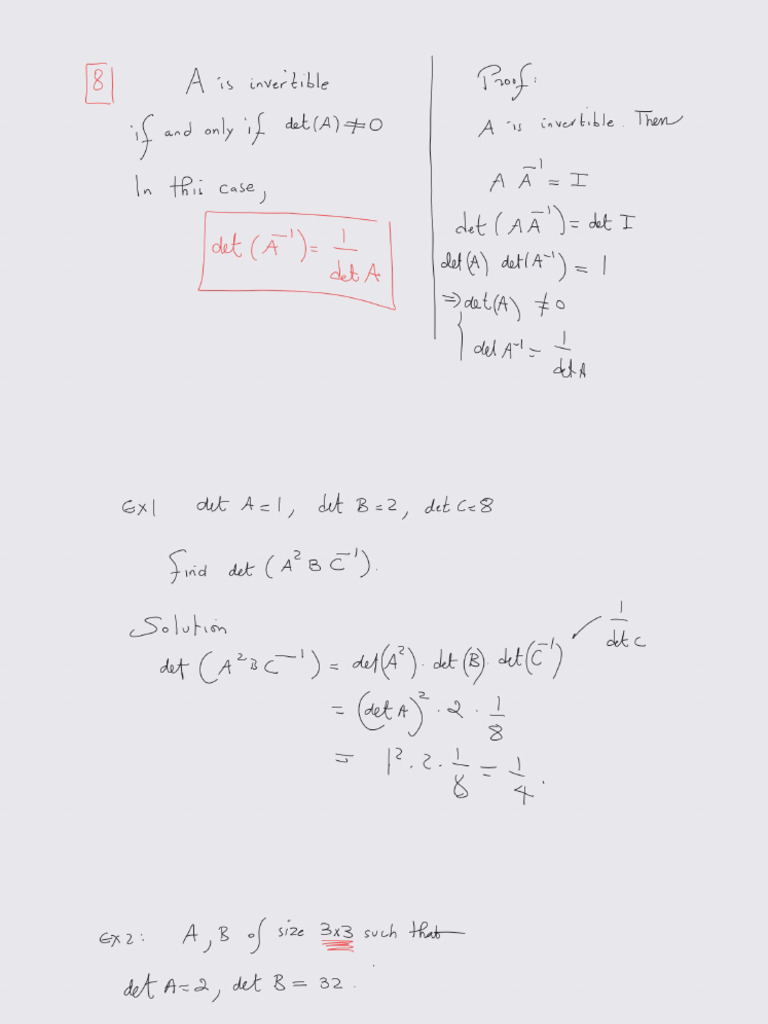 8
A is invertible
if and only if det(A) ≠ 0
In this case,
det(A⁻¹) = 1/det A
Proof:
A is invertible. Then
A A⁻¹ = I
det(A A⁻¹) = det I
det(A) det(A⁻¹) = 1
⇒ det(A) ≠ 0
{ det A⁻¹ = 1/det A
Ex1 det A = 1, det B = 2, det C = 8
find det(A² B C⁻¹).
Solution
det(A² B C⁻¹) = det(A²) · det(B) · det(C⁻¹) ↙ 1/det C
= (det A)² · 2 · 1/8
= 1² · 2 · 1/8 = 1/4.
Ex2: A, B of size 3x3 such that
det A = 2, det B = 32.